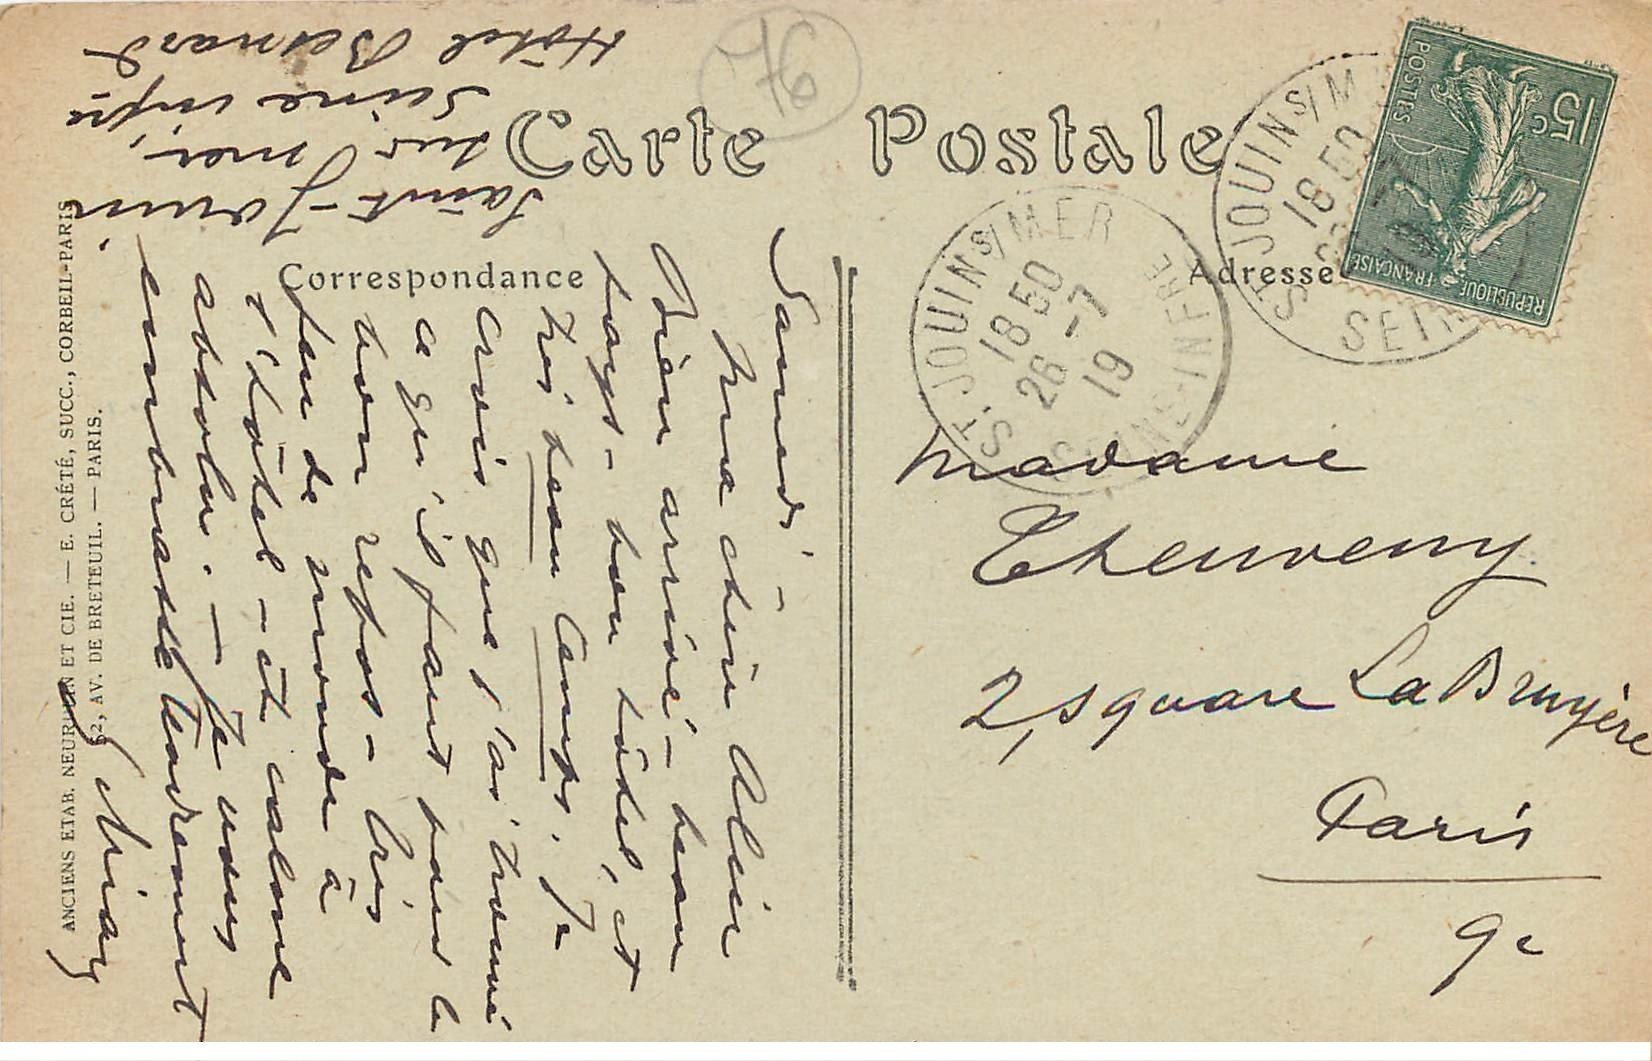 Carte Postale
Correspondance
Adresse
76
Saint-Jouin
sur mer,
Seine infre
Hôtel Bernard
Samedi -
Ma chère Alice
Bien arrivé - beau
pays - bon hôtel, et
très beau temps. Je
crois que j'ai trouvé
ce qu'il faut pour le
bon repos - très
peu de monde à
l'hôtel - et calme
absolu. - Je vous
embrasse tendrement
Madame
Theuveny
2, square La Bruyère
Paris
9e
ST JOUIN S/ MER
18 50
26 -7
19
SEINE-INFRE
ST JOUIN S/ M
18 50
19
SEI
15c
POSTES
REPUBLIQUE FRANÇAISE
ANCIENS ETAB. NEURDEIN ET CIE. — E. CRÉTÉ, SUCC., CORBEIL-PARIS
52, AV. DE BRETEUIL. — PARIS.